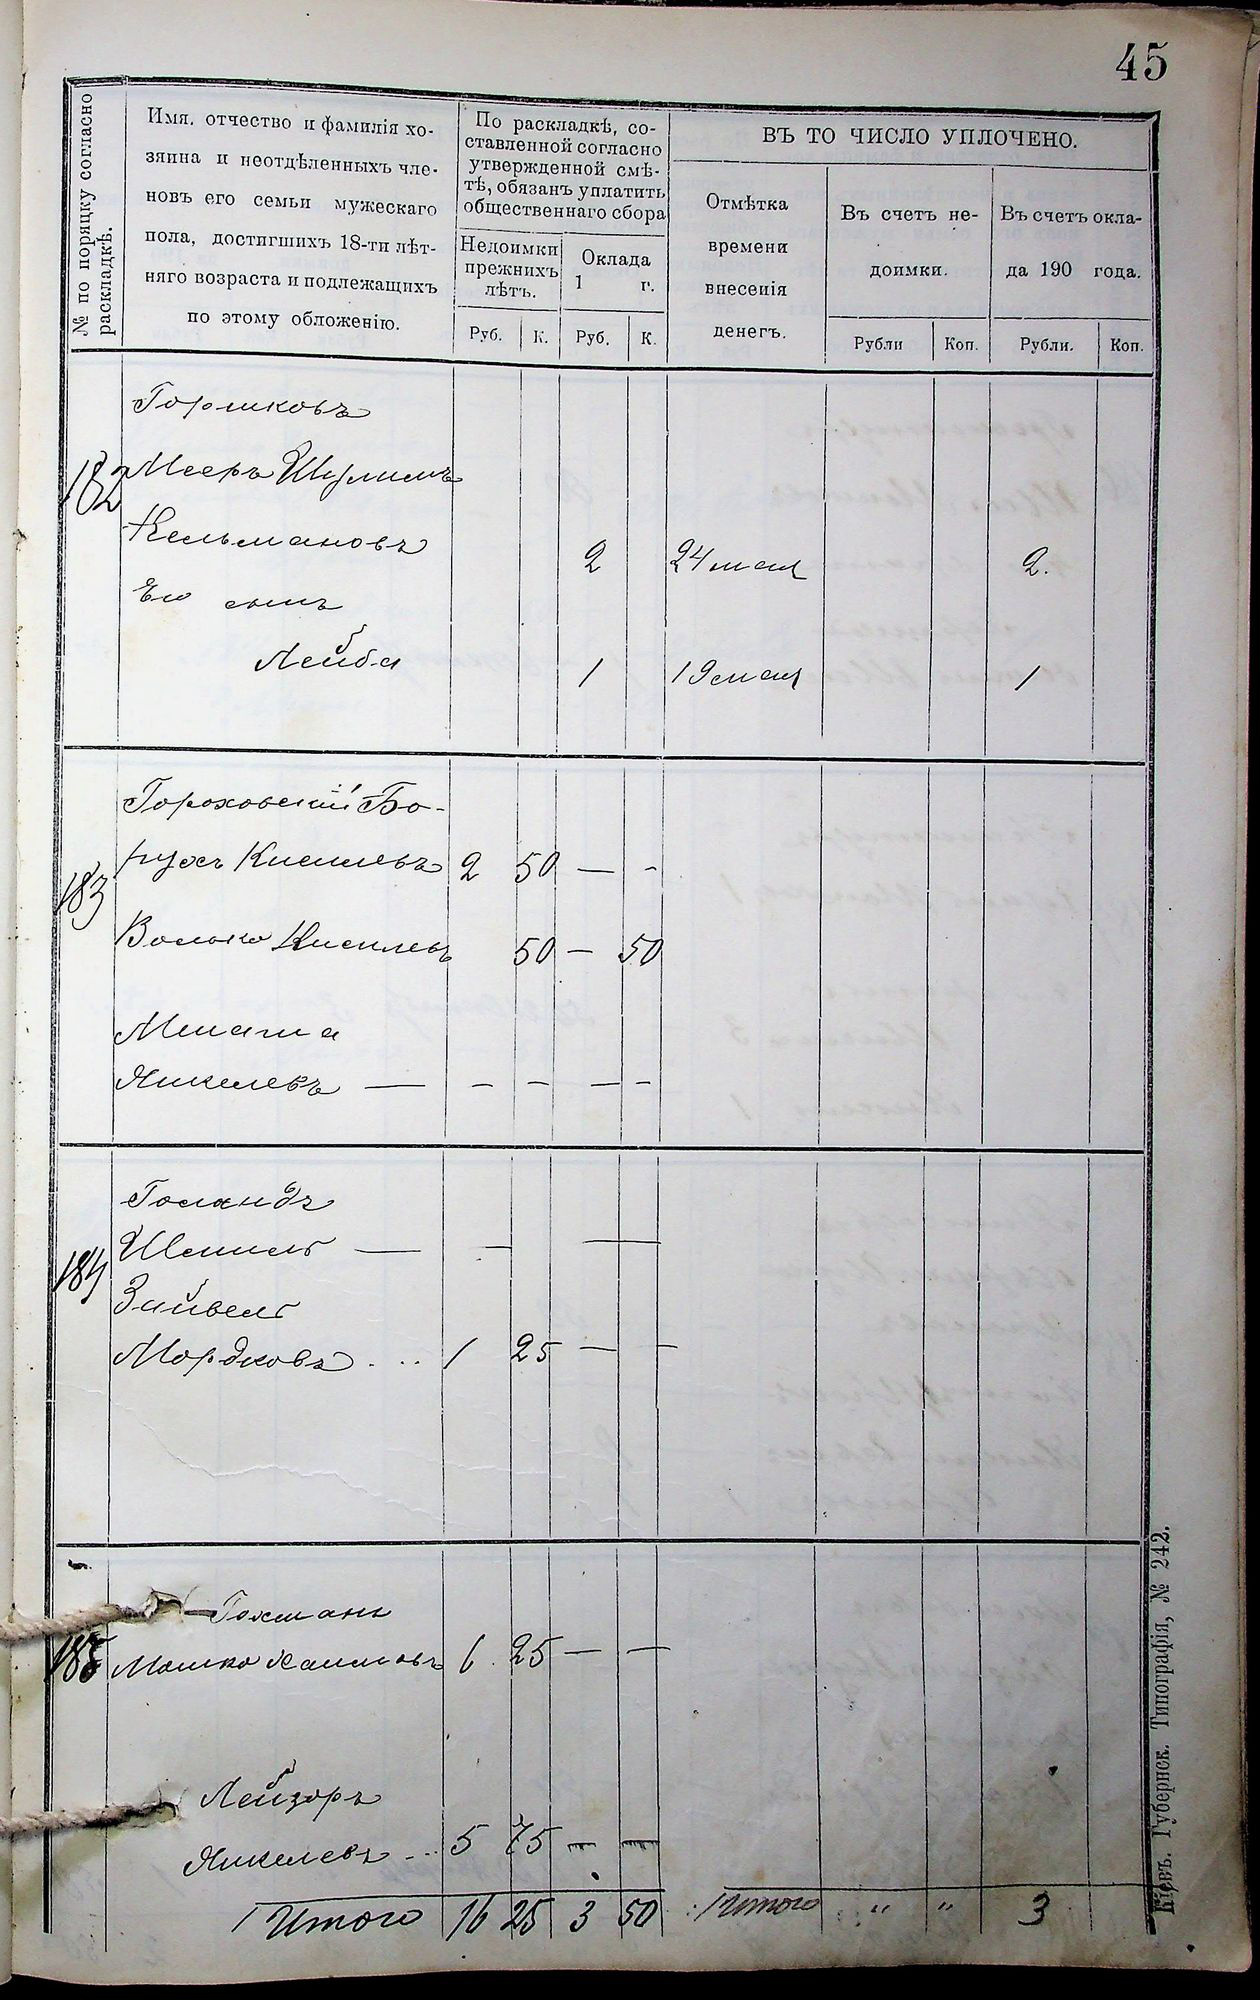 45
№ по порядку согласно раскладкѣ.
Имя, отчество и фамилія хо-
зяина и неотдѣленныхъ чле-
новъ его семьи мужескаго
пола, достигшихъ 18-ти лѣт-
няго возраста и подлежащихъ
по этому обложенію.
По раскладкѣ, со-
ставленной согласно
утвержденной смѣ-
тѣ, обязанъ уплатить
общественнаго сбора
Недоимки
прежнихъ
лѣтъ.
Оклада
1 г.
Руб. К. Руб. К.
ВЪ ТО ЧИСЛО УПЛОЧЕНО.
Отмѣтка
времени
внесенія
денегъ.
Въ счетъ не-
доимки.
Рубли Коп.
Въ счетъ окла-
да 190 года.
Рубли. Коп.
Горшковъ
182 Мееръ Шулимъ
Кельмановъ 2 24 мая 2.
Его сынъ
Лейба 1 19 мая 1
Гороховскій Бо-
183 рухъ Кисилевъ 2 50 — -
Волько Кисилевъ 50 — 50
Янкелевъ — - - — -
Голандъ
184 Шмиль — — —
Зайвель
Мордковъ . .. 1 25 — —
Гохманъ
185 Мошко Хаимовъ 6 25 — —
Лейзоръ
Янкелевъ ... 5 75 — —
Итого 16 25 3 50 Итого " " 3
Кіевъ. Губернск. Типографія, № 242.